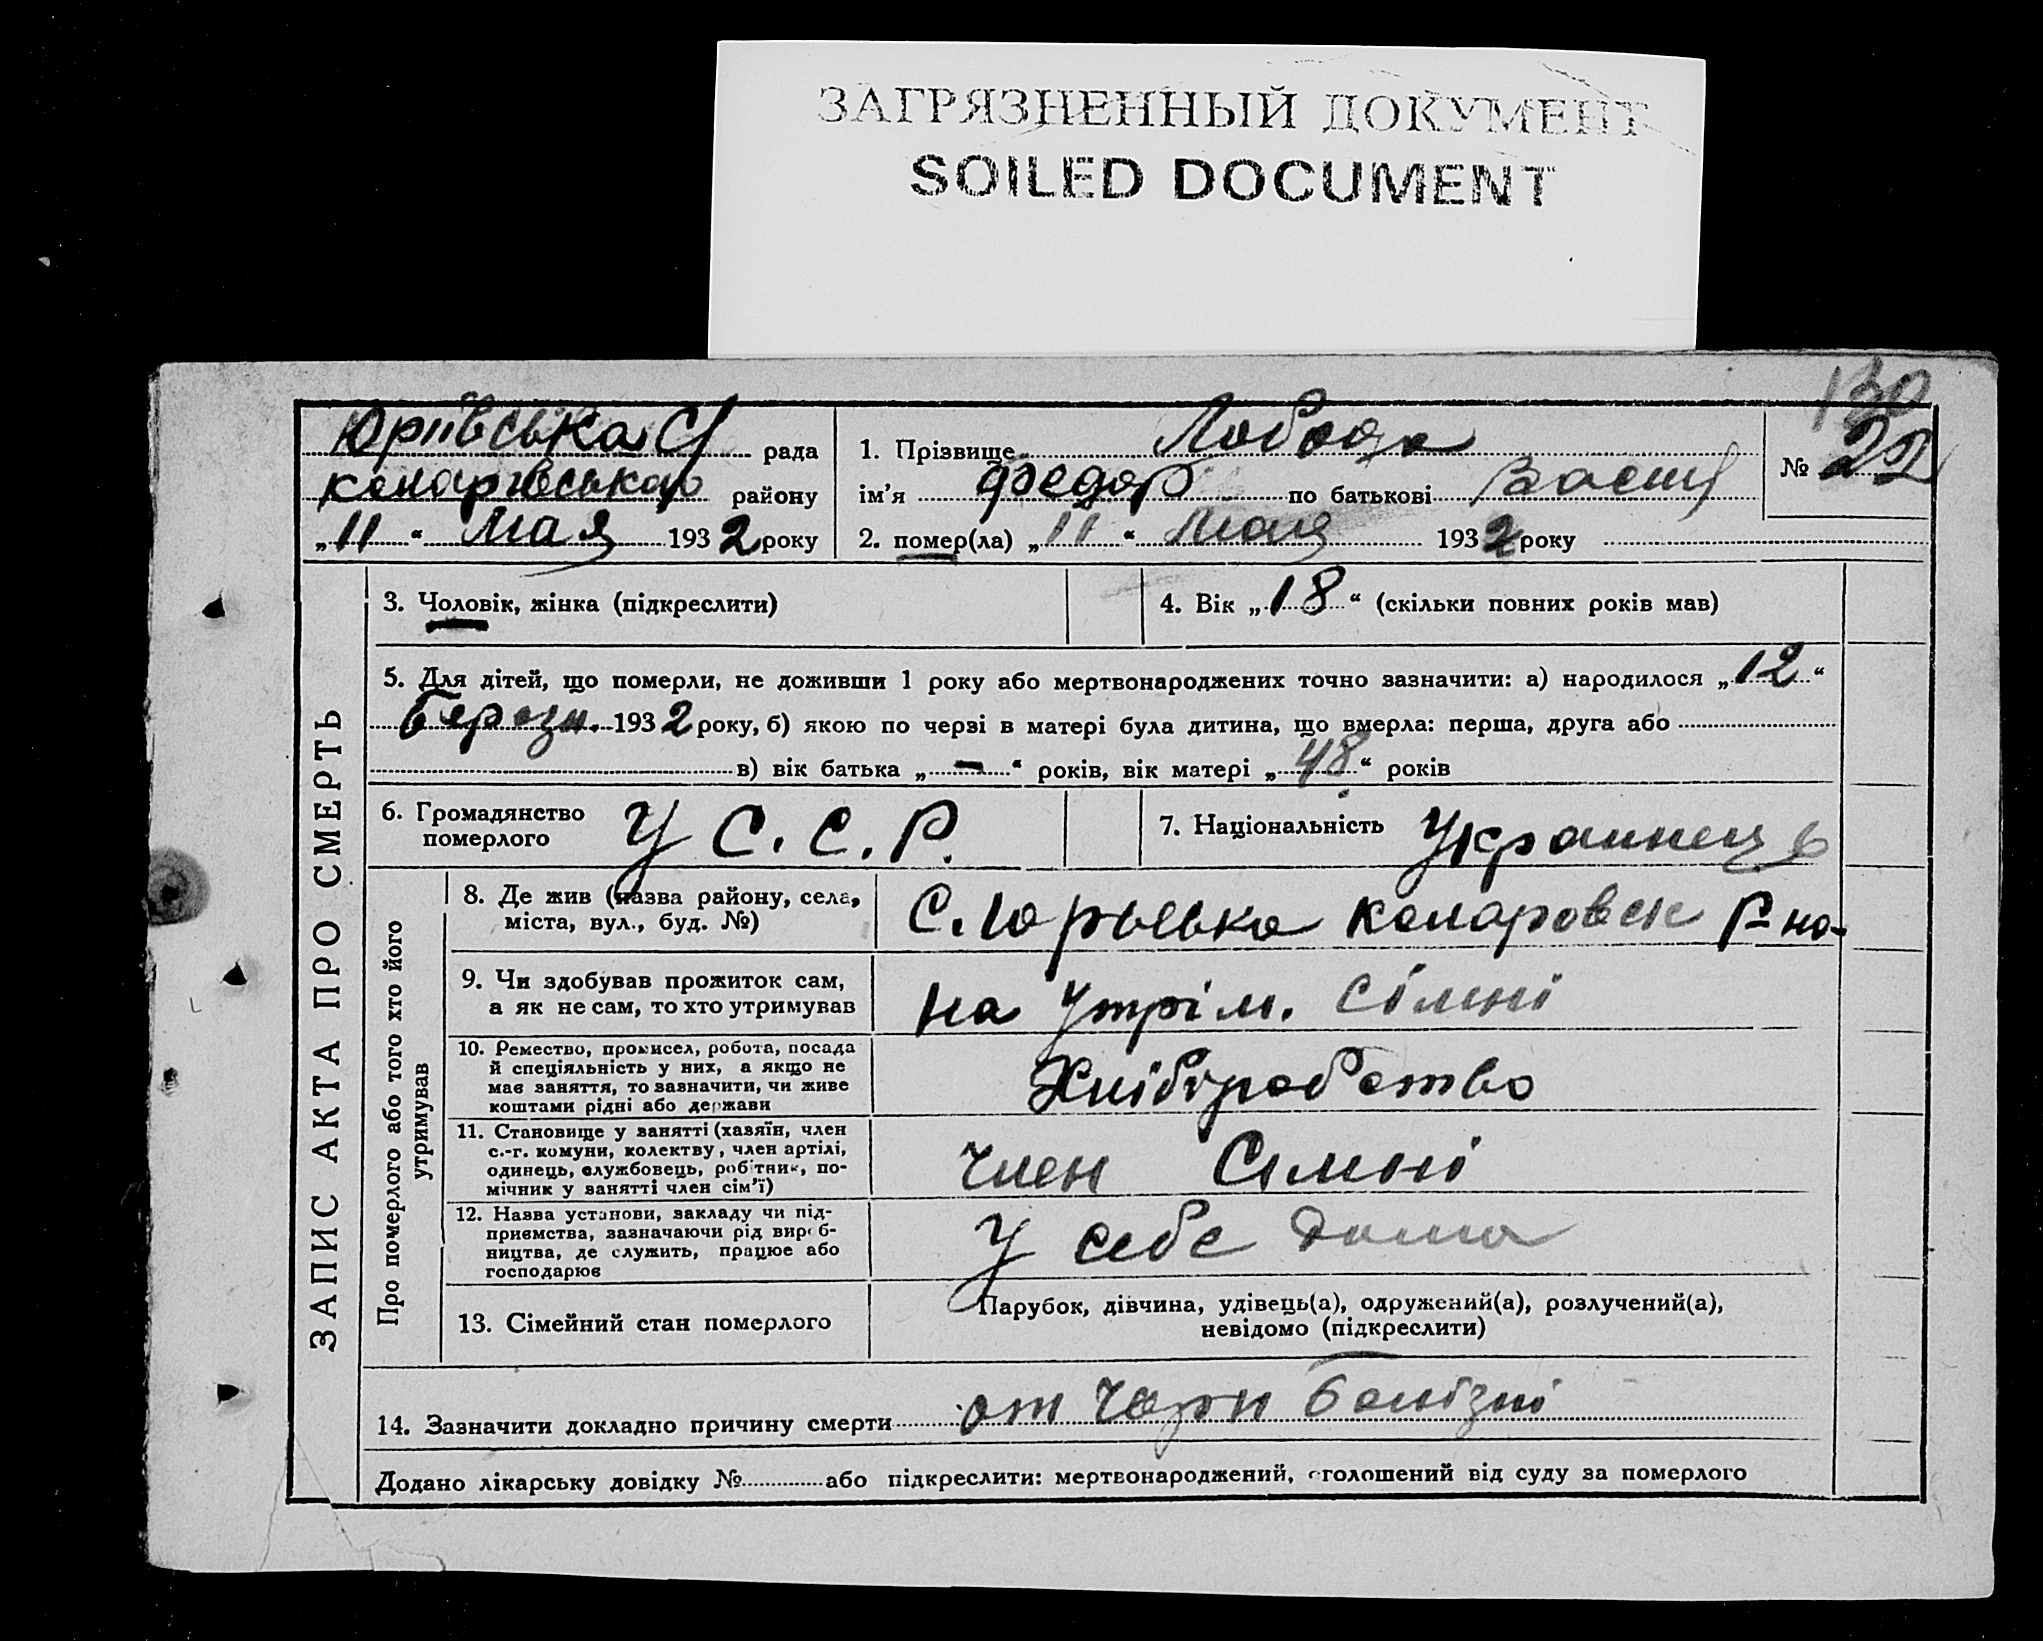 ЗАГРЯЗНЕННЫЙ ДОКУМЕНТ
SOILED DOCUMENT
130
Юріївська С/ рада
району
„11“ Мая 1932 року
1. Прізвище Лобода
ім’я Федор по батькові
2. помер(ла) „11“ Мая 1932 року
№ 22
ЗАПИС АКТА ПРО СМЕРТЬ
3. Чоловік, жінка (підкреслити)
4. Вік „18“ (скільки повних років мав)
5. Для дітей, що померли, не доживши 1 року або мертвонароджених точно зазначити: а) народилося „12“
Берозн. 1932 року, б) якою по черзі в матері була дитина, що вмерла: перша, друга або
в) вік батька „—“ років, вік матері „48“ років
6. Громадянство
померлого
У С. С. Р.
7. Національність Украинець
Про померлого або того хто його
утримував
8. Де жив (назва району, села,
міста, вул., буд. №)
с. Юрьевка Коларовск р-на
9. Чи здобував прожиток сам,
а як не сам, то хто утримував
на утрім. Сімьі
10. Ремество, промисел, робота, посада
й спеціяльність у них, а якщо не
має заняття, то зазначити, чи живе
коштами рідні або держави
Хліборобство
11. Становище у занятті (хазяїн, член
с.-г. комуни, колектву, член артілі,
одинець, службовець, робітник, по-
мічник у занятті член сім’ї)
член Сімьі
12. Назва установи, закладу чи під-
приємства, зазначаючи рід вироб-
ництва, де служить, працює або
господарює
У себе дома
13. Сімейний стан померлого
Парубок, дівчина, удівець(а), одружений(а), розлучений(а),
невідомо (підкреслити)
14. Зазначити докладно причину смерти от
Додано лікарську довідку № або підкреслити: мертвонароджений, оголошений від суду за померлого